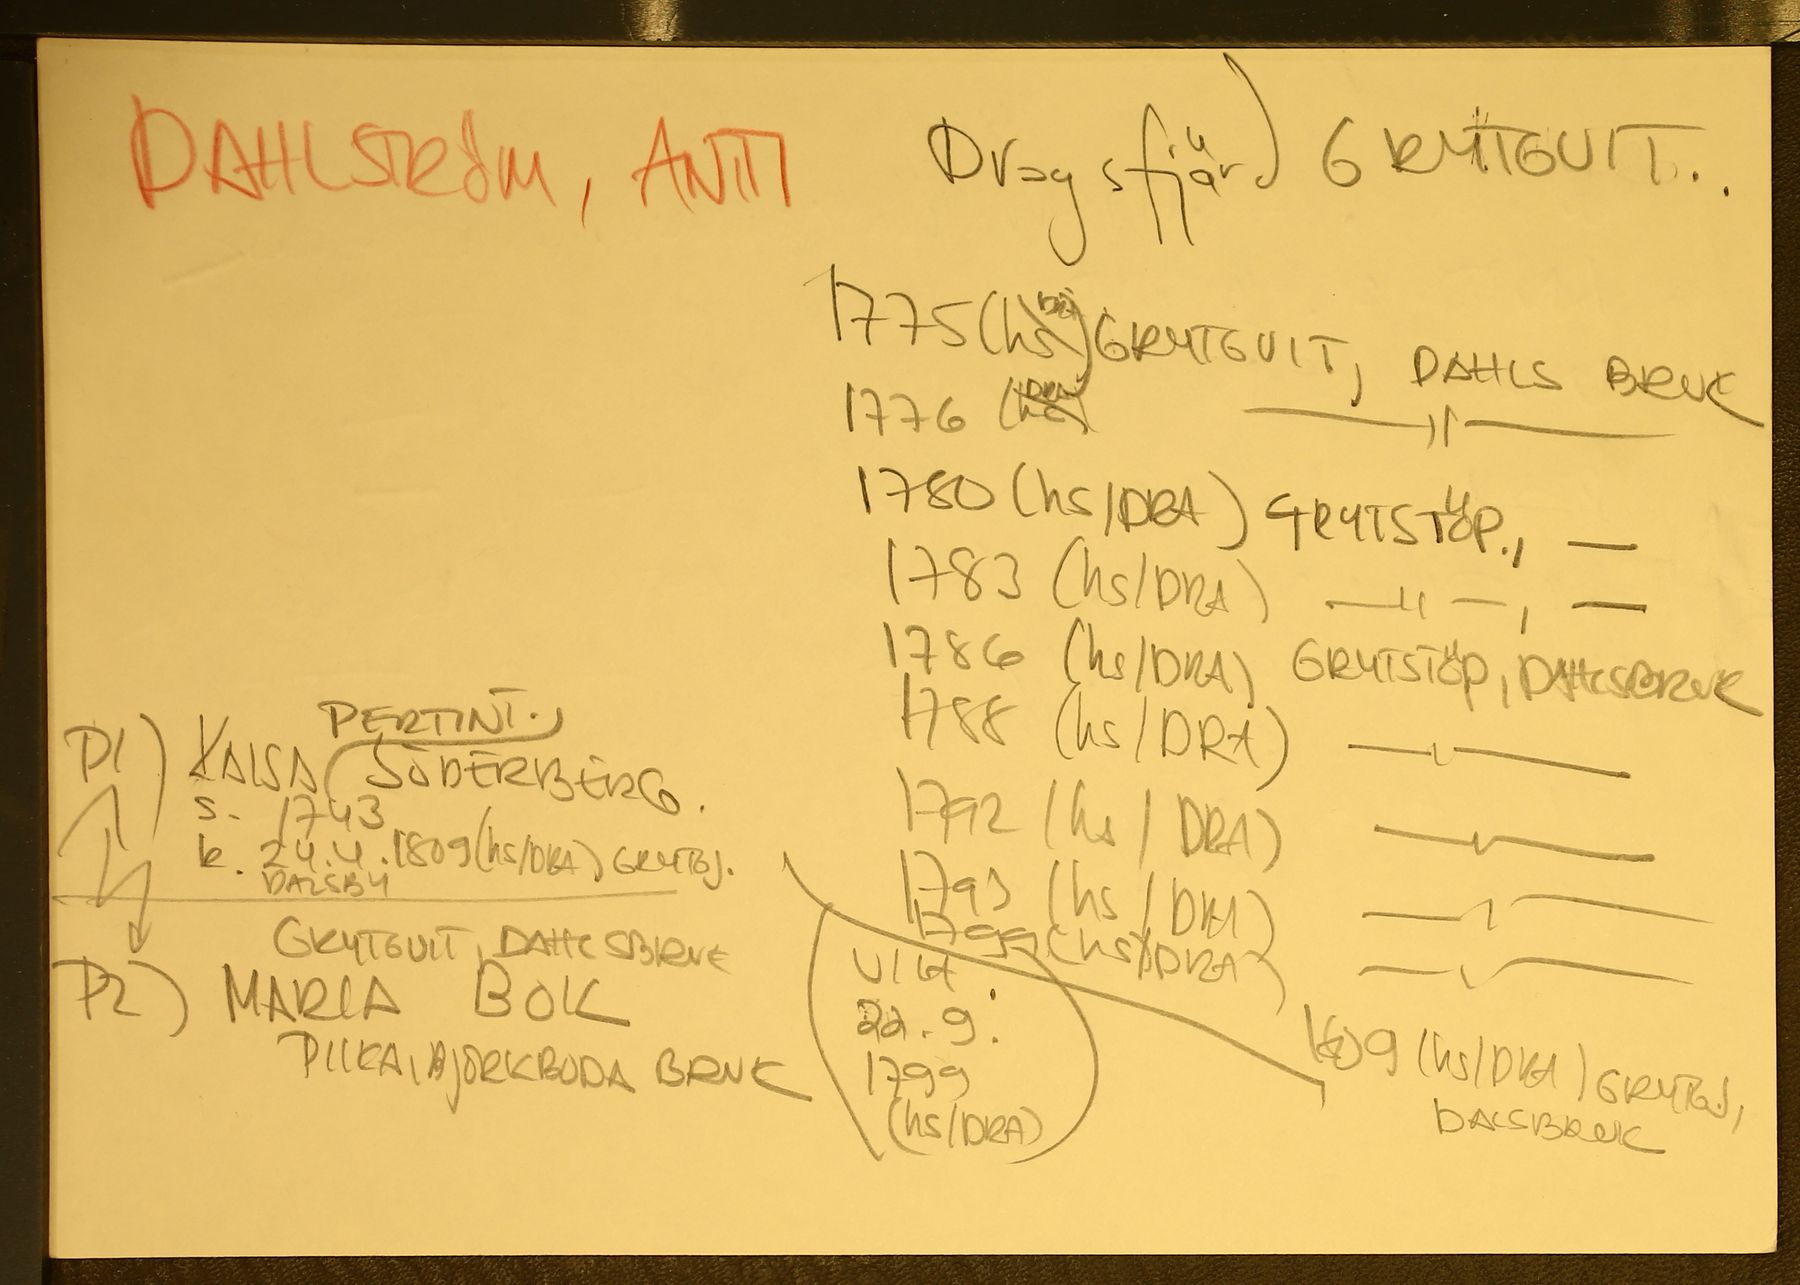 DAHLSTRÖM, ANTTI
Dragsfjärd GRYTGUIT..
1775 (hs) GRYTGUIT, DAHLS BRUK
1776 (hs) —〃—
1780 (hs/DRA) GRYTSTÖP., —
1783 (hs/DRA) —〃—, —
1786 (hs/DRA) GRYTSTÖP, DAHLSBRUK
1788 (hs/DRA) —〃—
1792 (hs/DRA) —〃—
1793 (hs/DRA) —〃—
1799 (hs/DRA) —〃—
1809 (hs/DRA) GRYTGJ,
DALSBRUK
PERTINT.
P1) KAISA (SÖDERBERG.
s. 1743
k. 24.4.1809 (hs/DRA) GRYTGJ.
DALSBY
GRYTGUIT, DAHLSBRUK
P2) MARIA BOK
PIIKA, BJÖRKBODA BRUK
Viht.
22.9.
1799
(hs/DRA)